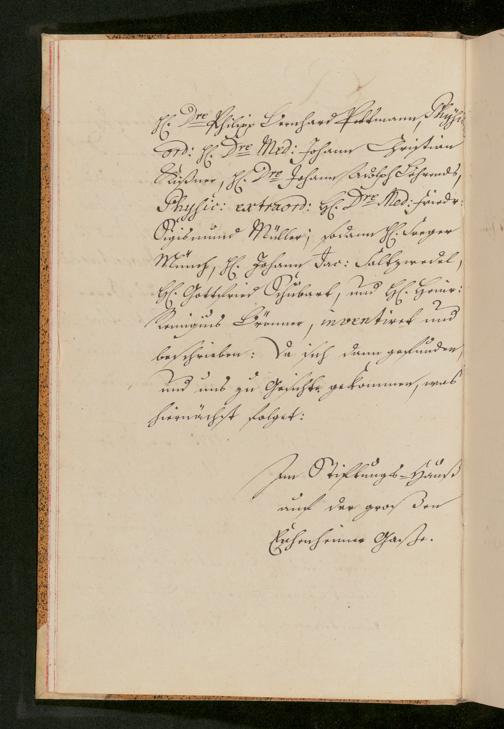 H. Dre Philipp Bernhard Pettmann, Physic:
ord: H. Dre Med: Johann Christian
Kißner, H. Dre Johann Adolph Behrends,
Physic: extraord: H. Dre Med: Friedr:
Sigismund Müller, sodann H.
Münch, H. Johann Jac: Saltzwedel,
H. Gottfried Schubart, und H. Henr:
Remigius Brönner, inventiret und
beschrieben: Da sich dann gefunden,
und uns zu Gesichte gekommen, was
hiernächst folget:
Im Stiftungs-Hauß
auf der großen
Eschenheimer Gasse.